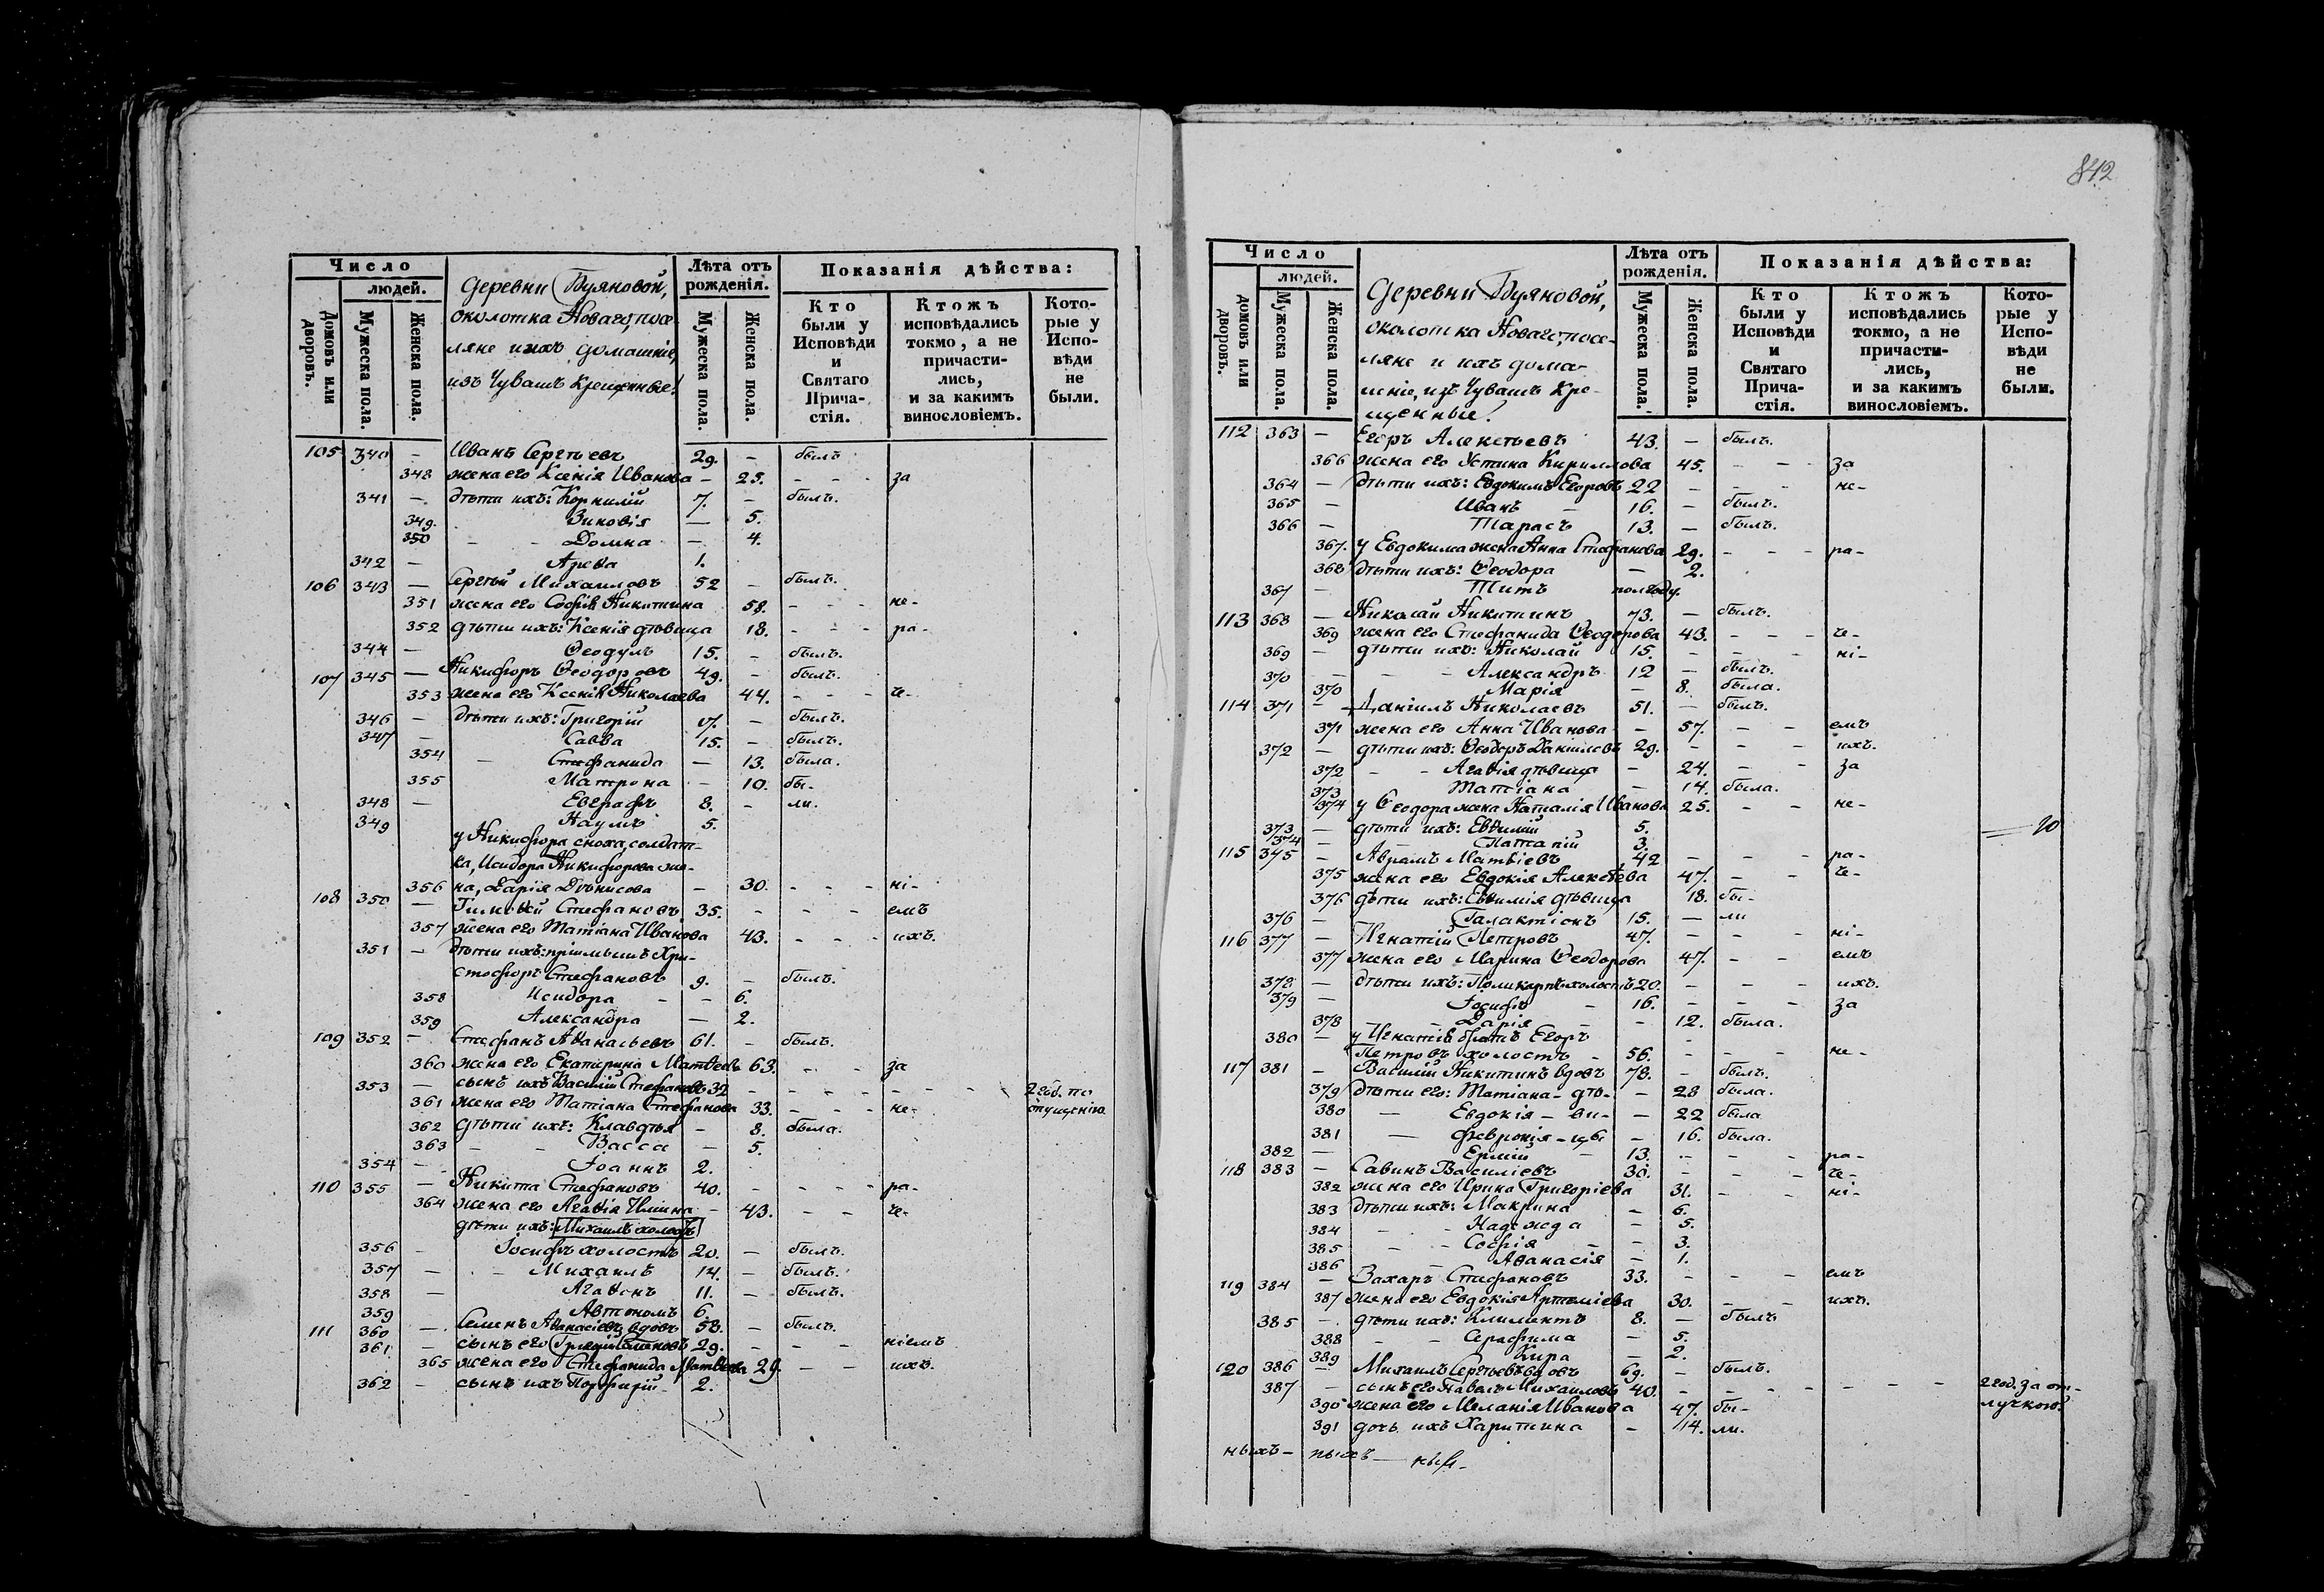 842
Число
людей.
Домовъ или дворовъ.
Мужеска пола.
Женска пола.
Деревни Буяновой,
околотка Новаго, посе-
ляне и ихъ домашніе,
изъ Чувашъ Крещенные!
Лѣта отъ рожденія.
Мужеска пола.
Женска пола.
Показанія дѣйства:
Кто были у Исповѣди и Святаго Прича-стія.
Ктожъ исповѣдались токмо, а не причасти-лись, и за какимъ винословіемъ.
Кото-рые у Испо-вѣди не были.
105 340 — Иванъ Сергѣевъ 29. — былъ
348 жена его Ксенія Иванова — 25. - - - за
341 — дѣти ихъ: Корнилій 7. — былъ.
349. Зиновія — 5.
350 - - Домна — 4.
342 — Арева 1.
106 343 — Сергѣй Михаиловъ 52 — былъ.
351 жена его Софія Никитина 58. - - - не-
352 дѣти ихъ: Ксенія дѣвица 18. - - - ра-
344 — Ѳеодулъ 15. - былъ.
107 345 — Никифоръ Ѳеодоровъ 49. - былъ.
353 жена его Ксенія Николаева 44. - - - че-
346 — дѣти ихъ: Григорій 17. — былъ.
347 — Савва 15. - былъ.
354 — Стефанида — 13. была.
355 Матрона - 10. бы-
348 — Евграфъ 8. - ли.
349 Наумъ 5.
у Никифора сноха, солдат-
ка, Исидора Никифорова же-
356 на, Дарія Діонисова — 30. - - - ні-
108 350 — Тимоѳей Стефановъ 35. - - - емъ
357 жена его Татіана Иванова 43. - - - ихъ.
351 — дѣти ихъ: пріемышъ Хри-
стофоръ Стефановъ 9. - былъ.
358 Исидора - - 6.
359 Александра — 2.
109 352 — Стефанъ Аѳанасьевъ 61. - былъ.
360 жена его Екатерина Матвѣева 63. - - за
353 — сынъ ихъ Василій Стефановъ 32 - - - - - 2 год. по
361 жена его Татіана Стефанова 33. - - - не- опущенію
362 дѣти ихъ: Клавдія - 8. была.
363 - - Васса — 5.
354 — Іоаннъ 2.
110 355 — Никита Стефановъ 40. - - - ра-
364 жена его Агаѳія Ильина - 43. - - че-
дѣти ихъ: Михаилъ холостъ
356 - Іосифъ холостъ 20. — былъ.
357 — - Михаилъ 14. — былъ.
358 — Агаѳонъ 11. — былъ.
359 Автономъ 6.
111 360 — Семенъ Аѳанасіевъ вдовъ 58. — былъ.
361 — сынъ его Григорій Семеновъ 29. - - - ніемъ
365 жена его Стефанида Матвѣева 29. — - ихъ.
362 — сынъ ихъ Порфирій 2.
Число
людей.
домовъ или дворовъ.
Мужеска пола.
Женска пола.
Деревни Буяновой,
околотка Новаго, посе-
ляне и ихъ дома-
шніе, изъ Чувашъ Кре-
щенные!
Лѣта отъ рожденія.
Мужеска пола.
Женска пола.
Показанія дѣйства:
Кто были у Исповѣди и Святаго Прича-стія.
Ктожъ исповѣдались токмо, а не причасти-лись, и за какимъ винословіемъ.
Кото-рые у Испо-вѣди не были.
112 363 — Егоръ Алексѣевъ 43. — былъ.
366 жена его Устина Кириллова 45. - - за
364 — дѣти ихъ: Евдокимъ Егоровъ 22 - - не-
365 — Иванъ — 16. — былъ.
366 — Тарасъ 13. — былъ.
367. у Евдокима жена Анна Стефанова 29. - - - ра-
368 дѣти ихъ: Ѳеодора — 2.
367 — Титъ полгоду.
113 368 — Николай Никитинъ 73. — былъ.
369 жена его Стефанида Ѳеодорова 43. - - - че-
369 — дѣти ихъ: Николай 15. - - - ні-
370 — - - Александръ 12 — былъ.
370 Марія — 8. была.
114 371 — Даніилъ Николаевъ 51. — былъ.
371 жена его Анна Иванова — 57. - - емъ
372 — дѣти ихъ: Ѳеодоръ Даниловъ 29. - - - ихъ.
372 - - Агаѳія дѣвица — 24. - - за
373 Татіана — 14. была.
374 у Ѳеодора жена Наталія Иванова 25. - - не-
373 — дѣти ихъ: Евѳимій 5. 20
374 — Патапій 3.
115 345 — Аврамъ Матвіевъ 42 - - - ра-
375 жена его Евдокія Алексѣева 47. - - че-
376 дѣти ихъ: Евѳимія дѣвица 18. бы-
376 — Галактіонъ 15. — ли
116 377 — Игнатій Петровъ 47. - - - ні-
377 жена его Марина Ѳеодорова 47. - - емъ
378 — дѣти ихъ: Поликарпъ холостъ 20. - - - ихъ.
379 — Іосифъ — 16. - - - за
378 Дарія - 12. была.
380 — у Игнатія братъ Егоръ
Петровъ холостъ - 56. - - - не-
117 381 — Василій Никитинъ вдовъ 78. — былъ.
379 дѣти его: Татіана - дѣ- — 28 была.
380 — Евдокія - ви- — 22 была
381 — Февронія - цы — 16. была.
382 — Ермій — 13. - - - ра-
118 383 — Савинъ Василіевъ 30. - - - че-
382 жена его Ирина Григоріева 31. - - ні-
383 дѣти ихъ: Макрина — 6.
384 — - Надежда — 5.
385 - - Софія - — 3.
386 - Аѳанасія — 1.
119 384 — Захаръ Стефановъ 33. - - - емъ
387 жена его Евдокія Артеміева 30. - - ихъ.
385 — дѣти ихъ: Климентъ 8. — былъ
388 — - Серафима — 5.
389 Кира — 2.
120 386 — Михаилъ Сергѣевъ вдовъ 69. — былъ.
387 — сынъ его Павелъ Михаиловъ 40. - - - - - - 2 год. за от-
390 жена его Меланія Иванова 47. бы- лучкою.
391 дочь ихъ Харитина — 14. ли.